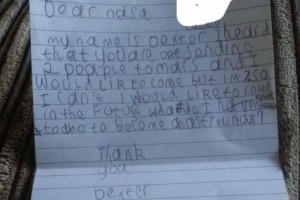 Dear nasa
my name is Dexter I heard
that you are sending
2 people to mars and I
would like to come but im 7 so
I can't would like to come
in the future what do I have
to do to become an astrounaut?
Thank
you
Dexter